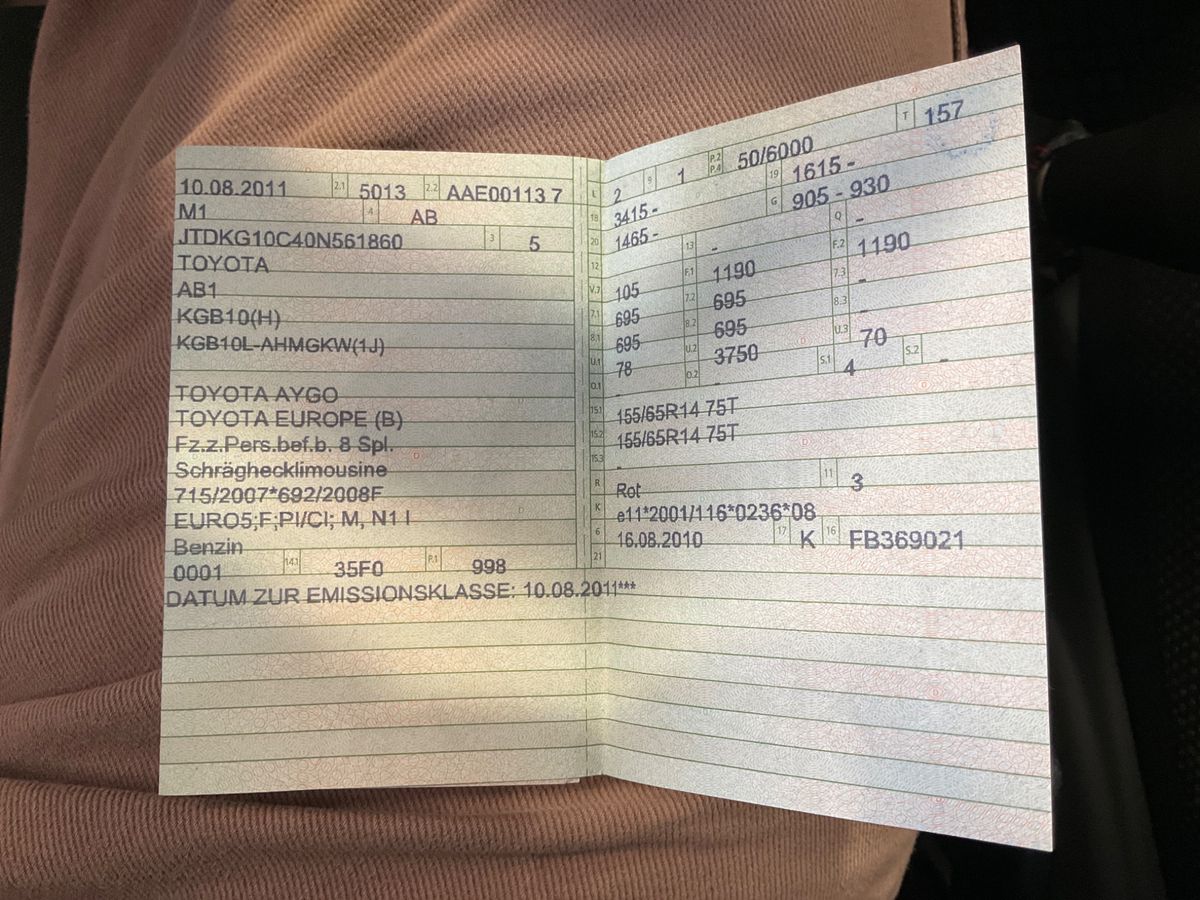 10.08.2011 2.1 5013 2.2 AAE00113 7
M1 4 AB
JTDKG10C40N561860 3 5
TOYOTA
AB1
KGB10(H)
KGB10L-AHMGKW(1J)
TOYOTA AYGO
TOYOTA EUROPE (B)
Fz.z.Pers.bef.b. 8 Spl.
Schräghecklimousine
715/2007*692/2008F
EURO5;F;PI/CI; M, N1 I
Benzin
0001 14.1 35F0 P.1 998
DATUM ZUR EMISSIONSKLASSE: 10.08.2011***
L 2 9 1 P.2 P.4 50/6000 T 157
18 3415 - 19 1615 -
20 1465 - G 905 - 930
12 13 - Q -
V.7 105 F.1 1190 F.2 1190
7.1 695 7.2 695 7.3 -
8.1 695 8.2 695 8.3 -
U.1 78 U.2 3750 U.3 70
O.1 - O.2 - S.1 4 S.2 -
15.1 155/65R14 75T
15.2 155/65R14 75T
15.3 -
R Rot 11 3
K e11*2001/116*0236*08
6 16.08.2010 17 K 16 FB369021
21